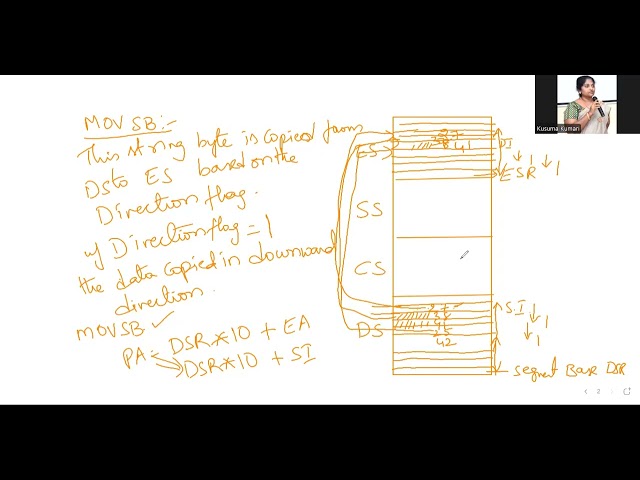 MOVSB:-
This string byte is copied from
DS to ES based on the
Direction flag.
if Direction flag = 1
the data copied in downward
direction.
MOVSB ✓
PA = DSR*10 + EA
DSR*10 + SI
ES
SS
CS
DS
27
41
DI
↓1 ↓1
ESR
S.I
↓1
↓1
25
42
segment Base DSR
Kusuma Kumari
2